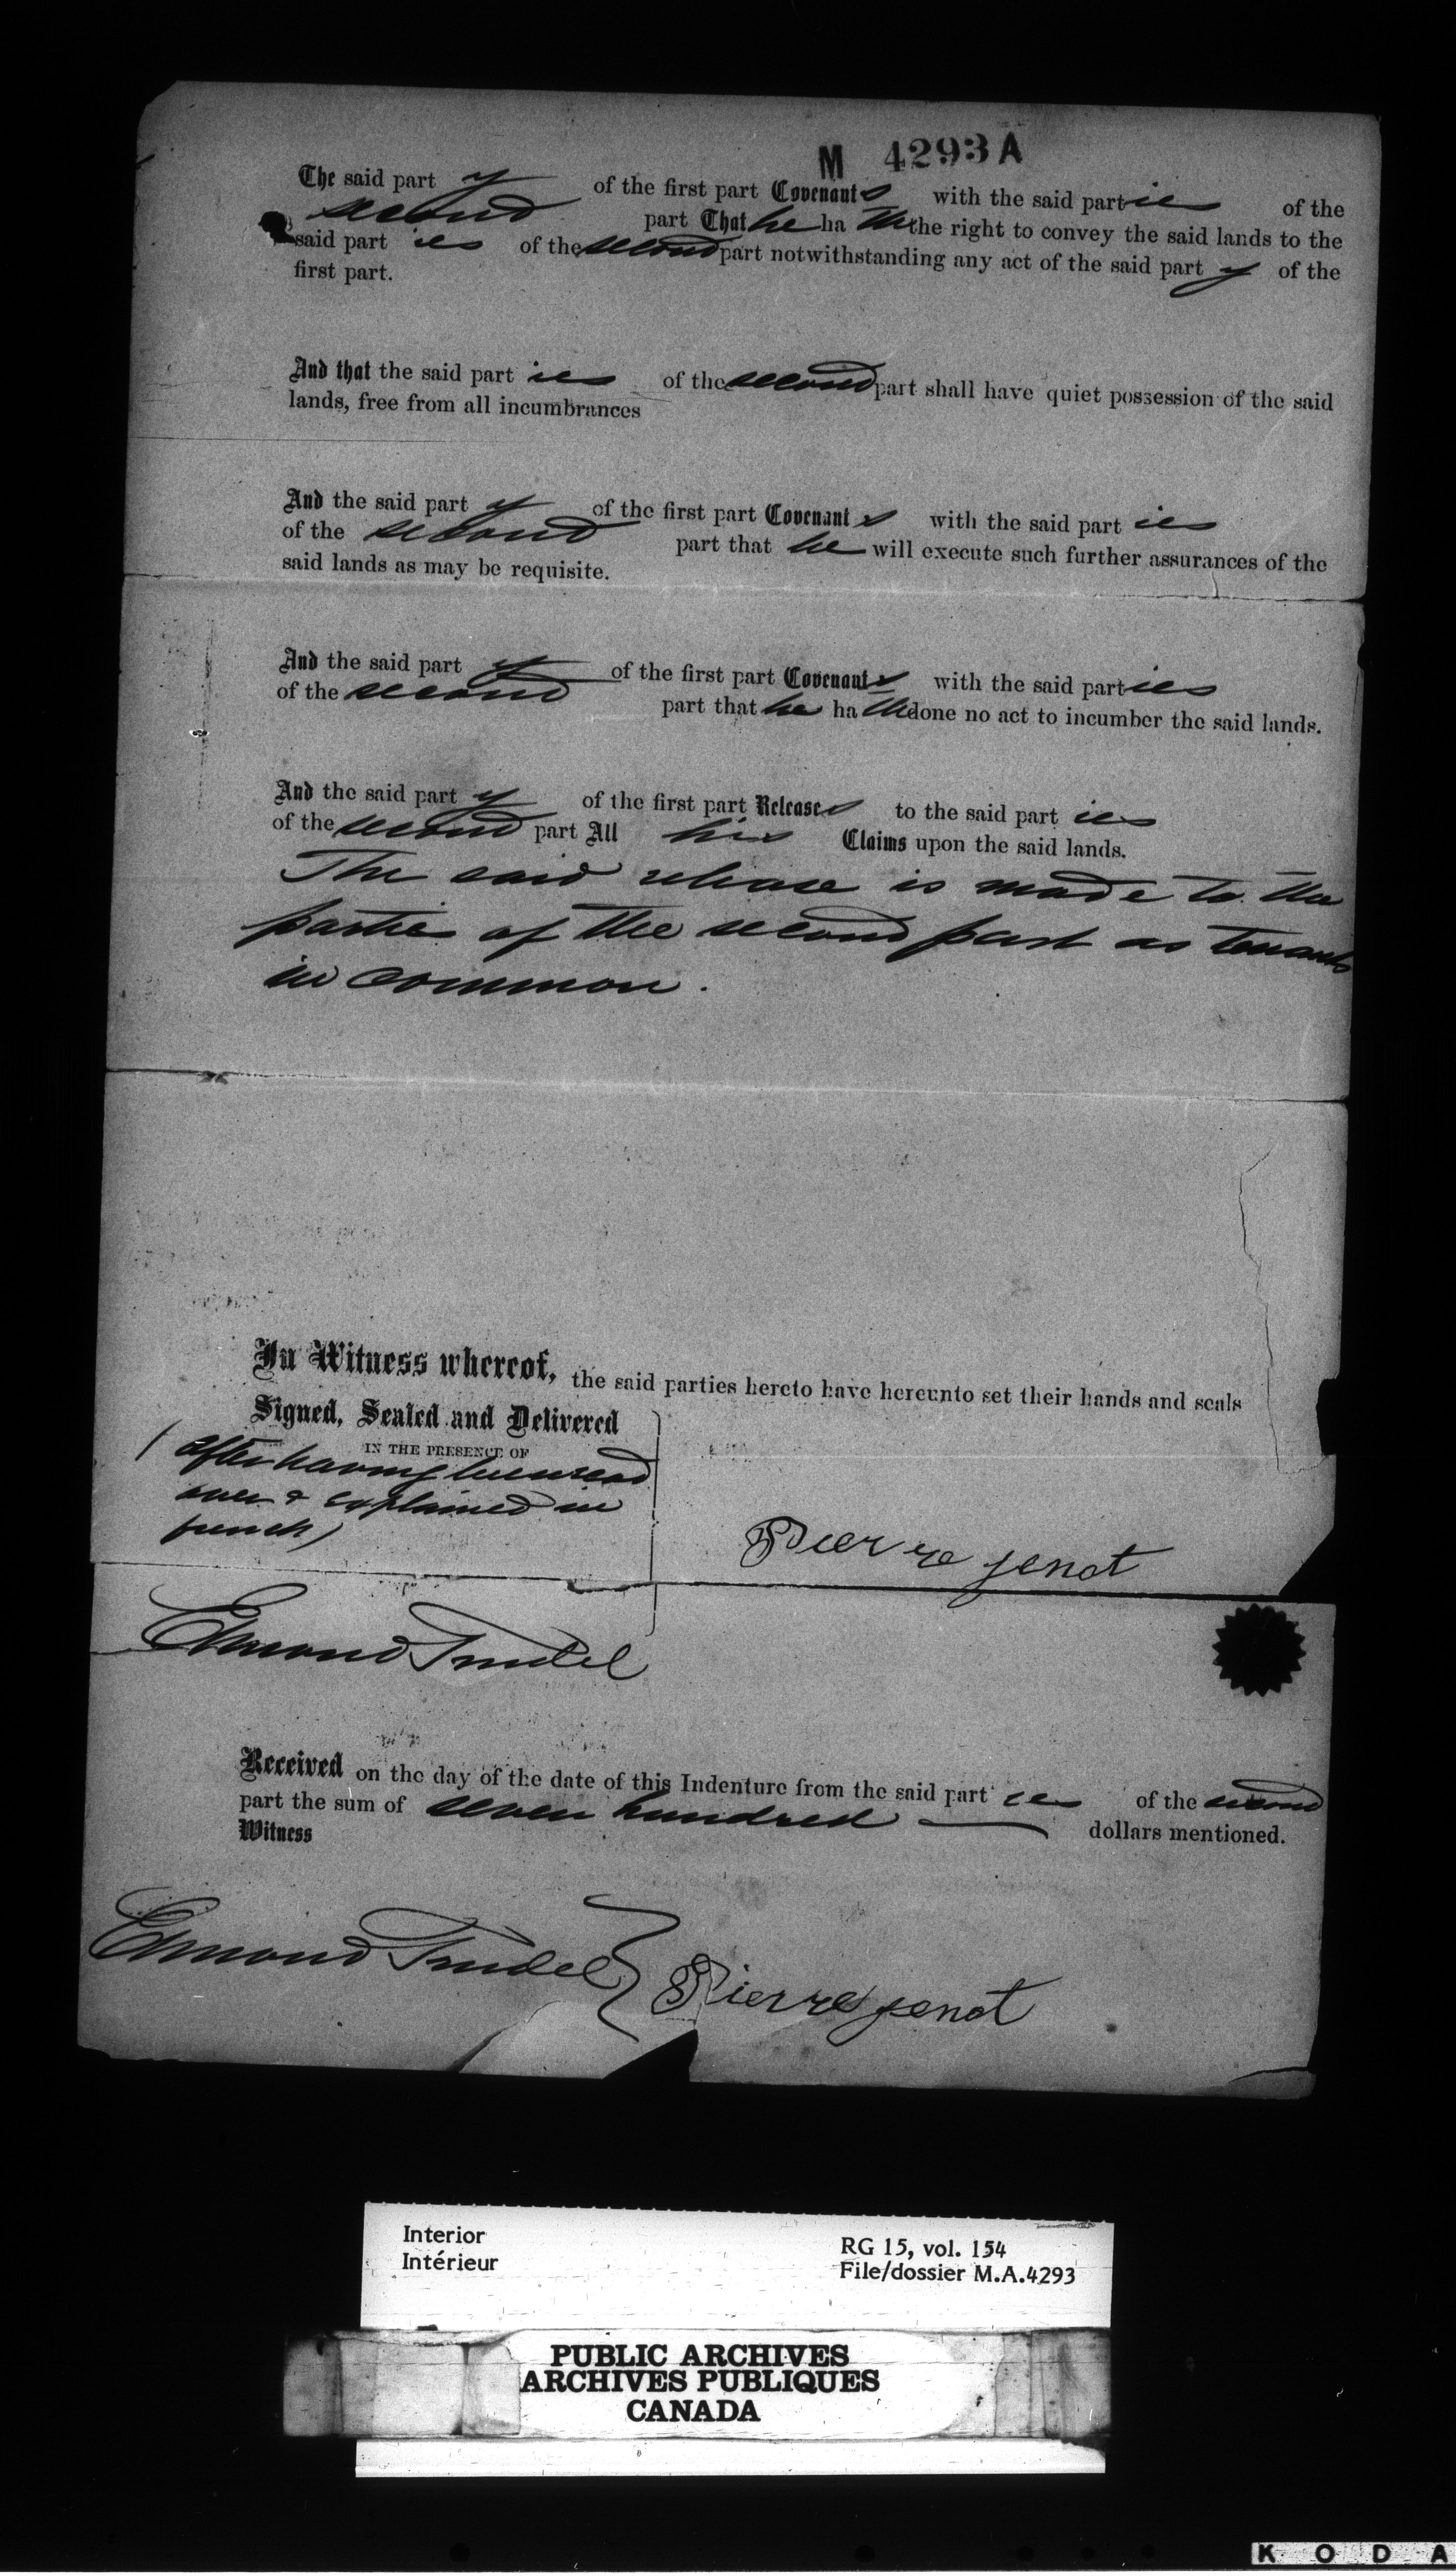 M 4293 A
The said part y of the first part Covenants with the said parties of the
second part That he hath the right to convey the said lands to the
said parties of the second part notwithstanding any act of the said party of the
first part.
And that the said parties of the second part shall have quiet possession of the said
lands, free from all incumbrances
And the said part y of the first part Covenants with the said parties
of the second part that he will execute such further assurances of the
said lands as may be requisite.
And the said part y of the first part Covenants with the said parties
of the second part that he hath done no act to incumber the said lands.
And the said part y of the first part Releases to the said parties
of the second part All his Claims upon the said lands.
The said release is made to the
parties of the second part as tenants
in common.
In Witness whereof, the said parties hereto have hereunto set their hands and seals
Signed, Sealed and Delivered
IN THE PRESENCE OF
(after having been read
over & explained in
french)
Pierre jenot
Edmond Trudel
Received on the day of the date of this Indenture from the said parties of the second
part the sum of seven hundred dollars mentioned.
Witness
Edmond Trudel
Pierre jenot
Interior
Intérieur
RG 15, vol. 154
File/dossier M.A.4293
PUBLIC ARCHIVES
ARCHIVES PUBLIQUES
CANADA
K O D A